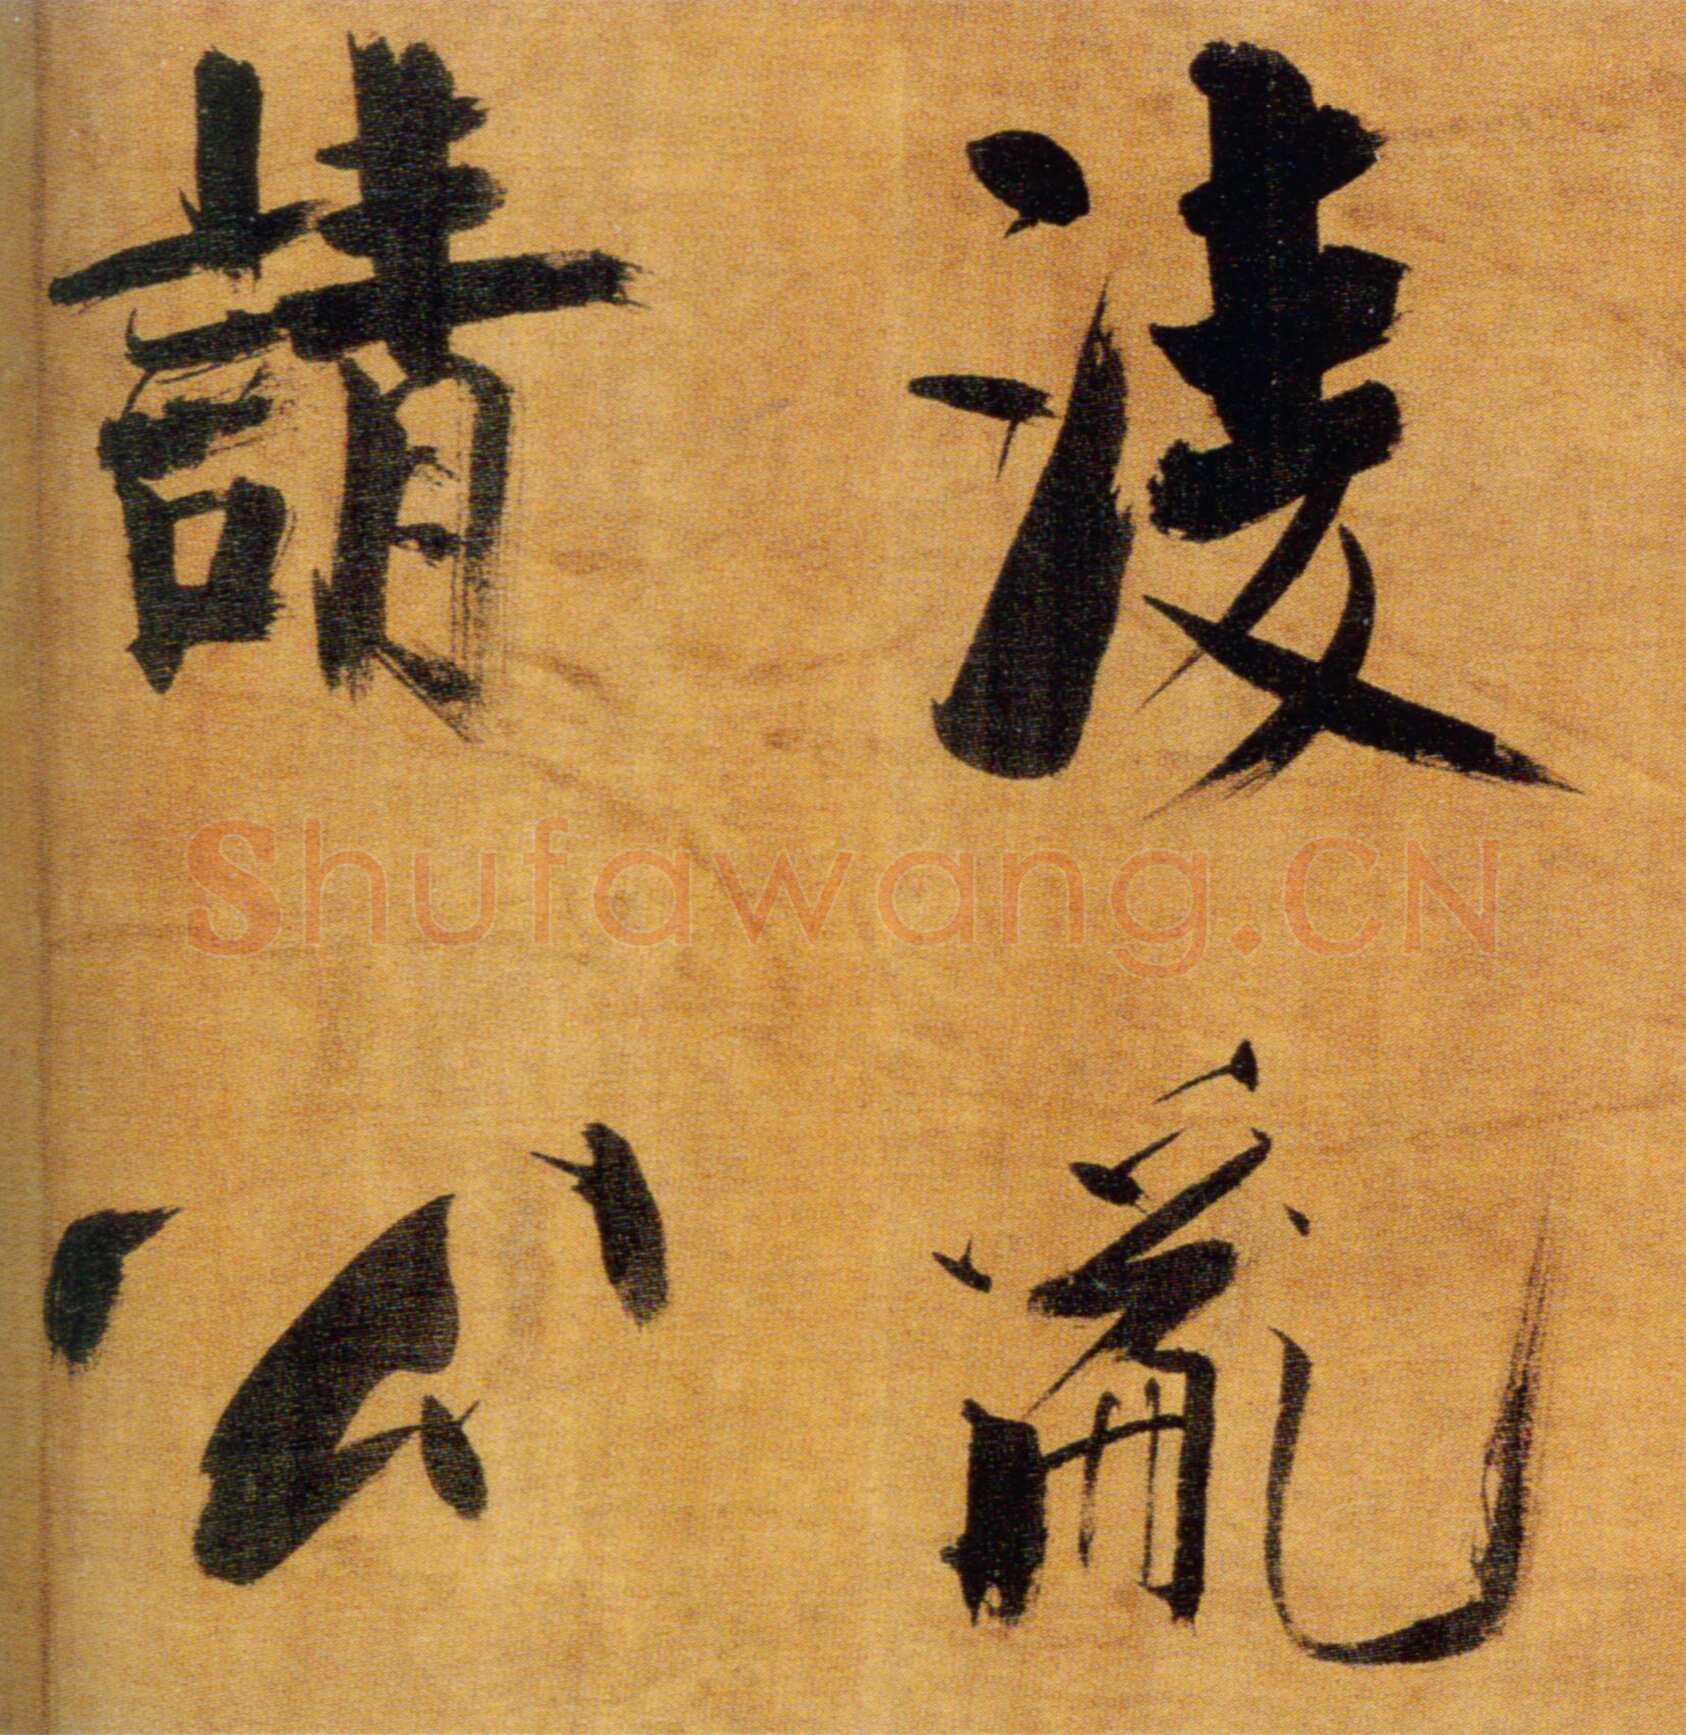 淩亂
請公
Shufawang.CN